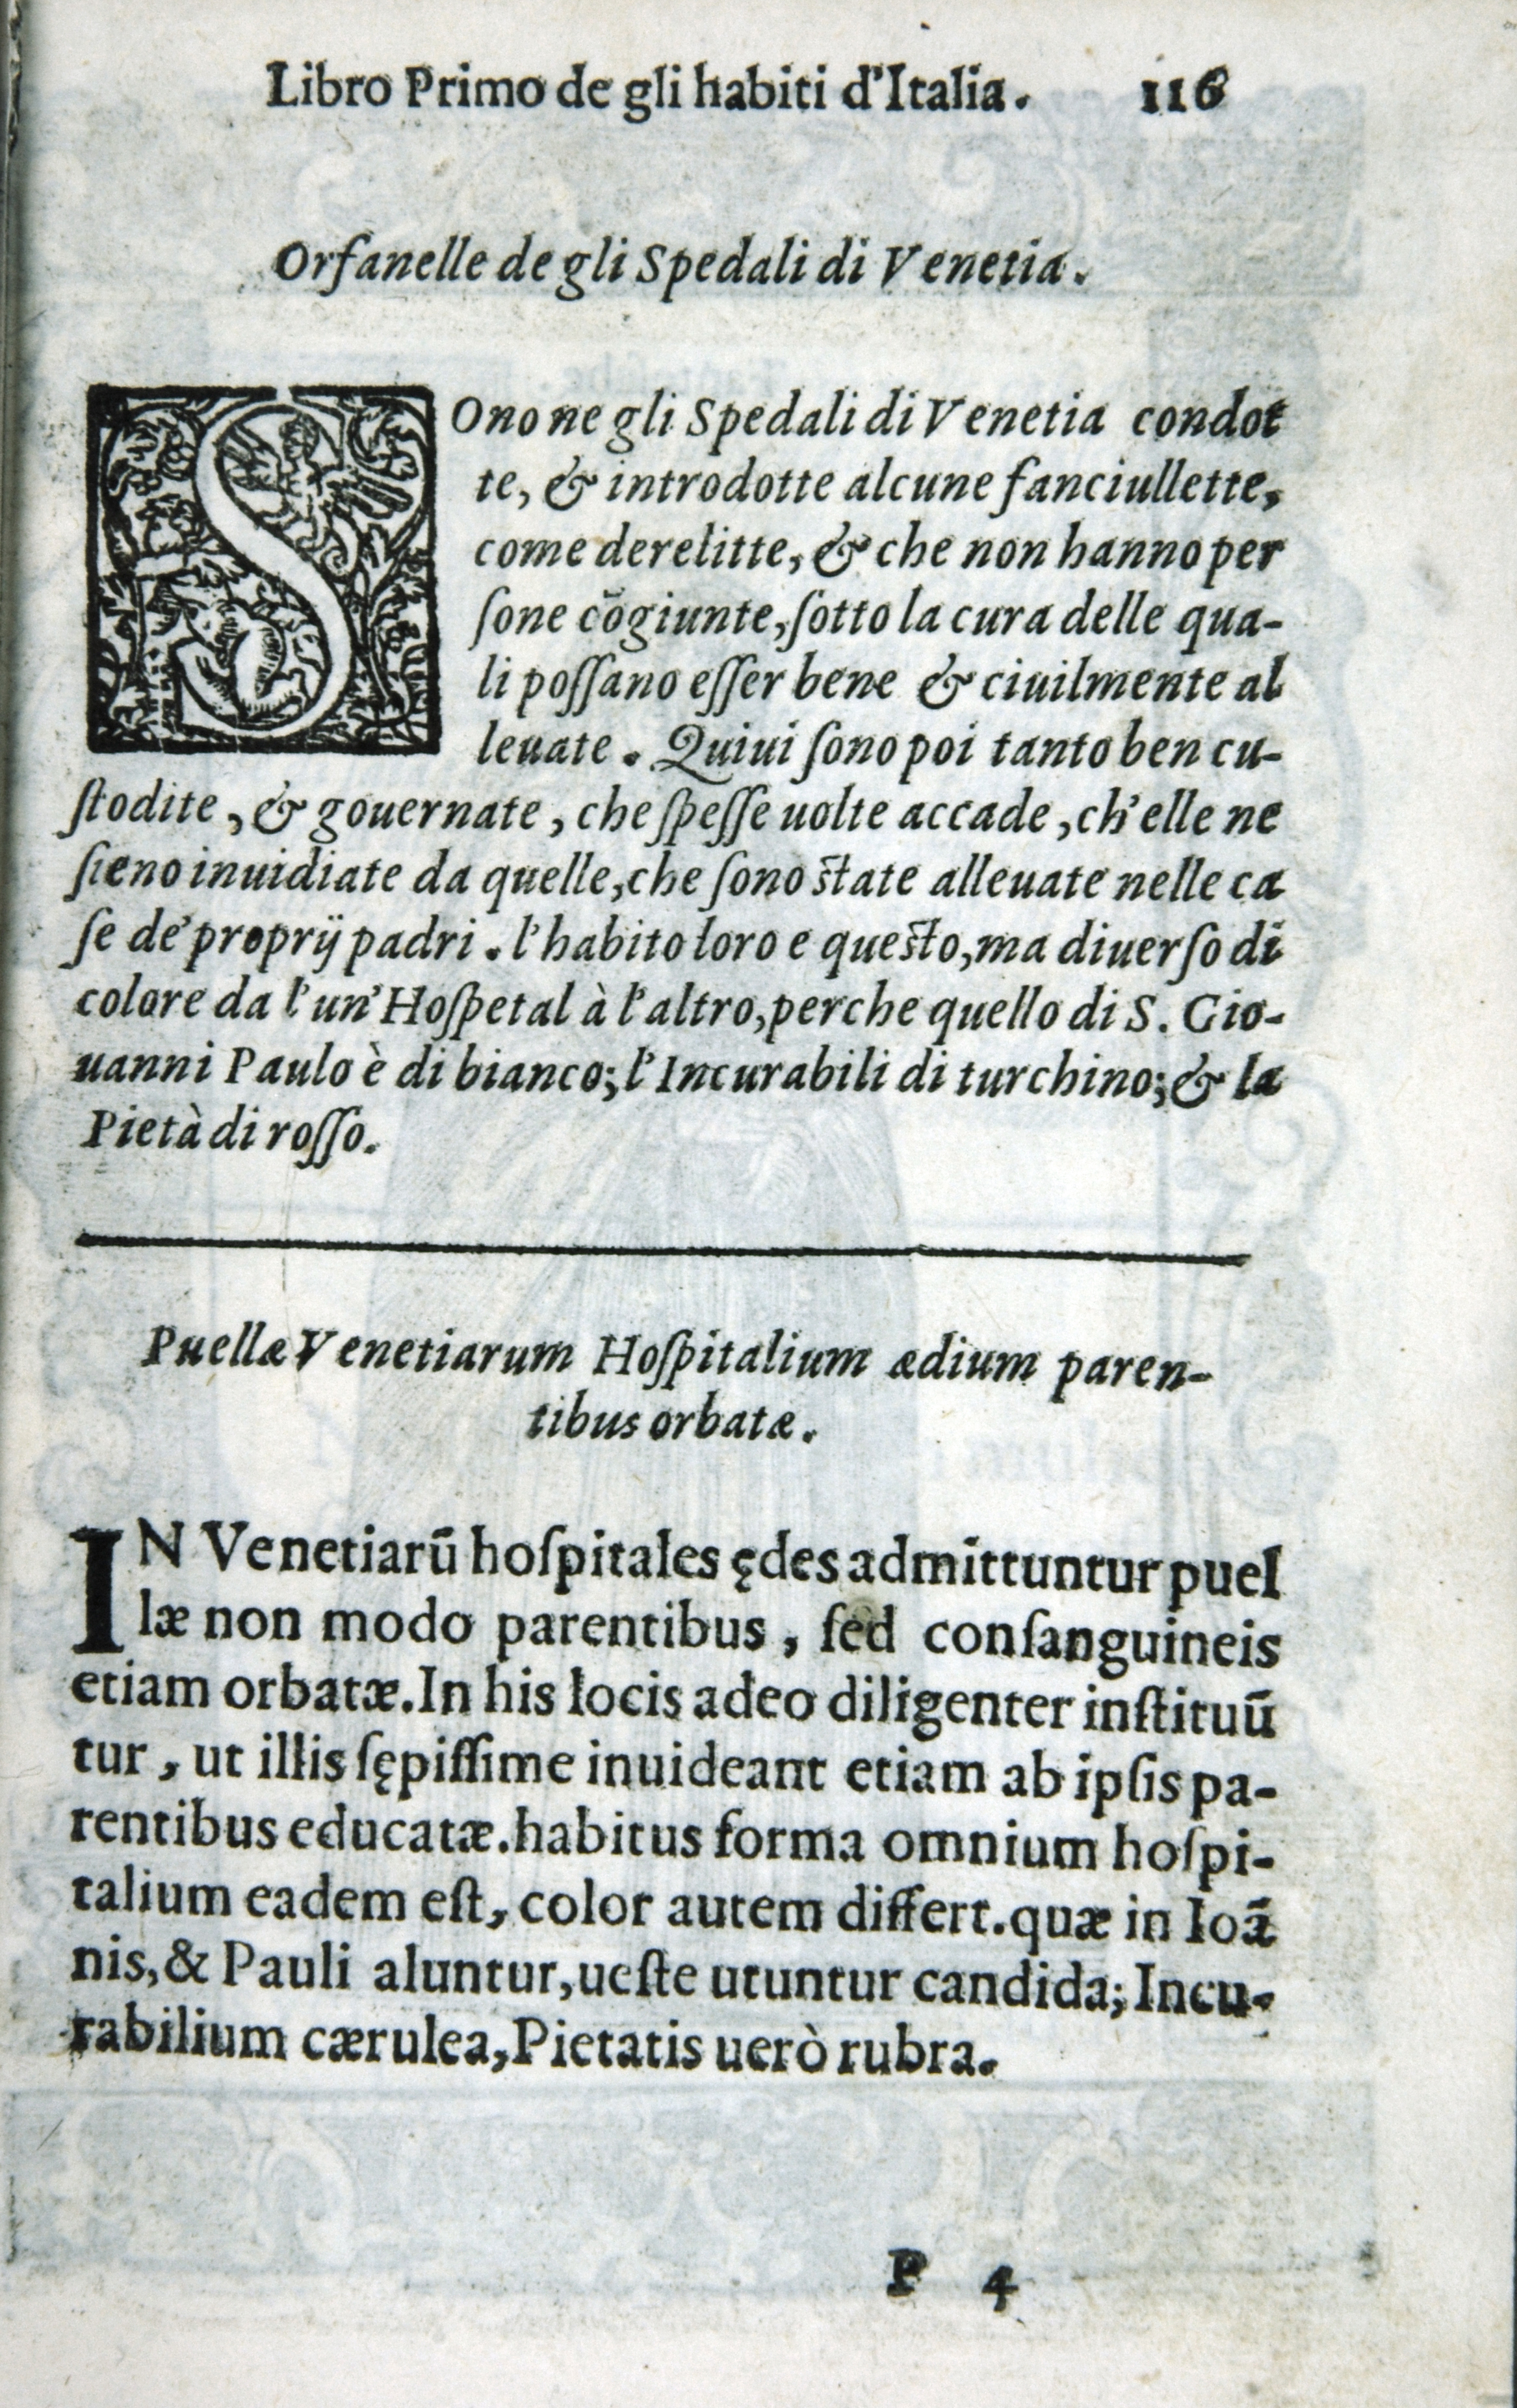 Libro Primo de gli habiti d'Italia. 116
Orfanelle de gli Spedali di Venetia.
SOno ne gli Spedali di Venetia condot
te, & introdotte alcune fanciullette,
come derelitte, & che non hanno per
ſone cōgiunte, ſotto la cura delle qua-
li poſſano eſſer bene & ciuilmente al
leuate. Quiui ſono poi tanto ben cu-
ſtodite, & gouernate, che ſpeſſe uolte accade, ch'elle ne
ſieno inuidiate da quelle, che ſono ſtate alleuate nelle ca
ſe de' proprij padri. l'habito loro e queſto, ma diuerſo di
colore da l'un' Hoſpetal à l'altro, perche quello di S. Gio-
uanni Paulo è di bianco; l'Incurabili di turchino; & la
Pietà di roſſo.
Puellæ Venetiarum Hoſpitalium ædium paren-
tibus orbatæ.
IN Venetiarū hoſpitales ędes admittuntur puel
læ non modo parentibus, ſed conſanguineis
etiam orbatæ. In his locis adeo diligenter inſtituū
tur, ut illis ſępiſſime inuideant etiam ab ipſis pa-
rentibus educatæ. habitus forma omnium hoſpi-
talium eadem eſt, color autem differt. quæ in Ioā
nis, & Pauli aluntur, ueſte utuntur candida; Incu-
rabilium cærulea, Pietatis uerò rubra.
P 4